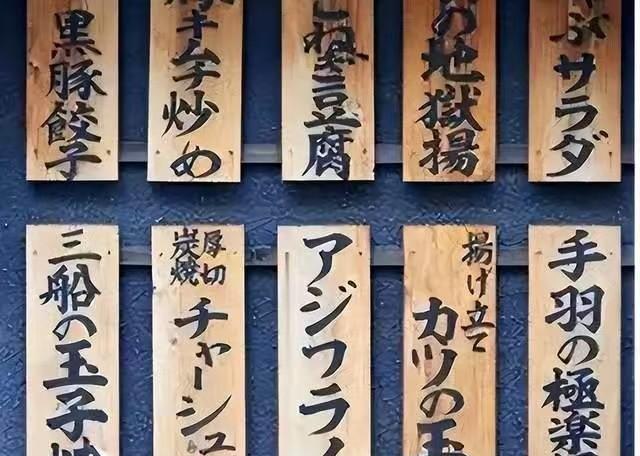 ぶサラダ
の地獄揚
豆腐
キムチ炒め
黒豚餃子
手羽の極楽
揚げ立て
カツの玉
アジフライ
厚切
炭焼
チャーシュ
三船の玉子焼